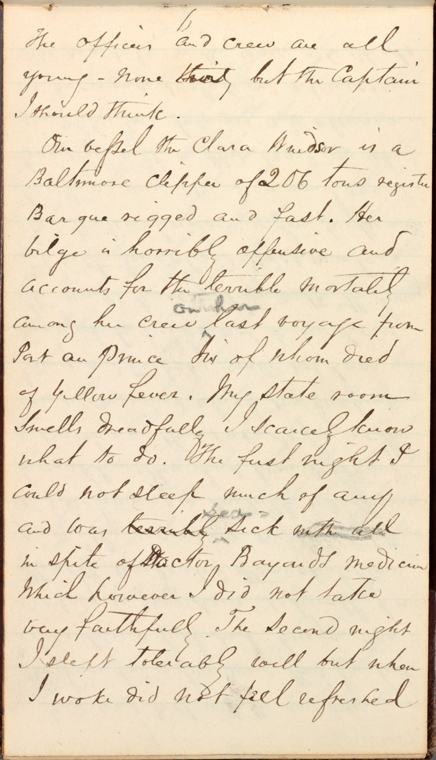 The officers and crew are all
young - none thirty but the Captain
I should think.
Our vessel the Clara Windsor is a
Baltimore clipper of 206 tons register
Barque rigged and fast. Her
bilge is horribly offensive and
accounts for the terrible mortality
on her
among her crew last voyage from
Port au Prince Six of whom died
of yellow fever. My state room
smells dreadfully I scarcely know
what to do. The first night I
could not sleep much if any
sea-
and was terribly sick with all
in spite of Doctor Bayard's medicine
Which however I did not take
very faithfully. The second night
I slept tolerably well but when
I woke did not feel refreshed